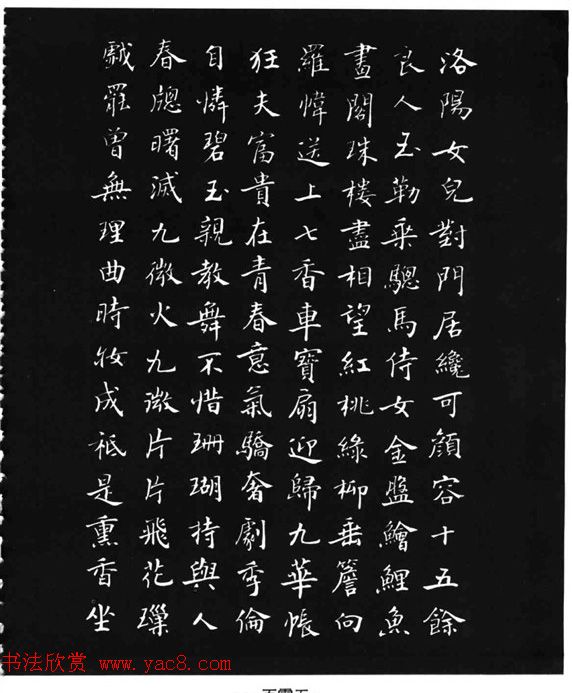 洛陽女兒對門居纔可顏容十五餘
良人玉勒乘驄馬侍女金盤鱠鯉魚
畫閣珠樓盡相望紅桃綠柳垂簷向
羅幃送上七香車寶扇迎歸九華帳
狂夫富貴在青春意氣驕奢劇季倫
自憐碧玉親教舞不惜珊瑚持與人
春牕曙滅九微火九微片片飛花璅
戲罷曾無理曲時妝成祇是熏香坐
书法欣赏 www.yac8.com